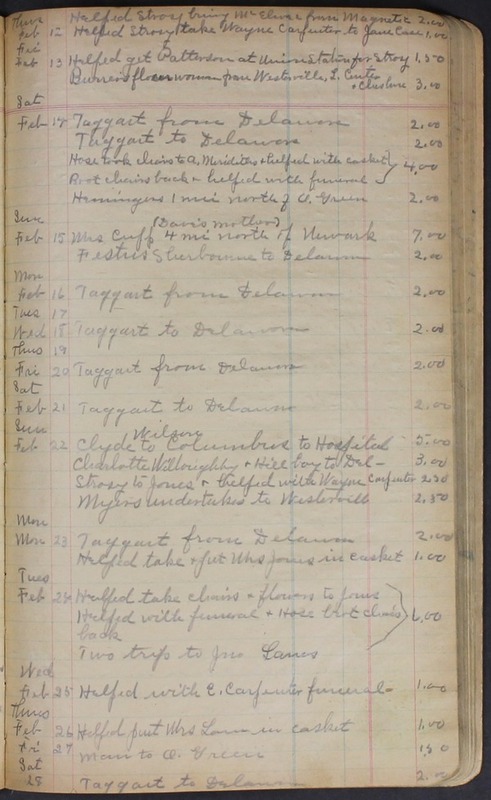 Thurs Helped Strosy bring Mc Elwee from Magnetic 2.00
Feb 12 Helped Strosy take Wayne Carpenter to Jane Case 1.00
Fri
Feb 13 Helped get Patterson at Union Station for Strosy 1.50
flower woman from Westerville, L. Center
+ Cheshire 3.00
Sat
Feb 14 Taggart from Delaware 2.00
Taggart to Delaware 2.00
Hose took chairs to A. Meridiths + helped with casket
Brot chairs back + helped with funeral 4.00
Hemingers 1 mi north of O. Green 2.00
Sun
(Davis mother)
Feb 15 Mrs Cuff 4 mi north of Newark 7.00
Festus Sherbourne to Delaware 2.00
Mon
Feb 16 Taggart from Delaware 2.00
Tues 17
Wed 18 Taggart to Delaware 2.00
Thurs 19
Fri 20 Taggart from Delaware 2.00
Sat
Feb 21 Taggart to Delaware 2.00
Sun
Wilson
Feb 22 Clyde to Columbus to Hospital 5.00
Charlotte Willoughby + Hill boy to Del- 3.00
Strosy to Jones + helped with Wayne Carpenter 2.50
Myers undertaker to Westervill 2.50
Mon
Mon 23 Taggart from Delaware 2.00
Helped take + put Mrs Jones in casket 1.00
Tues
Feb 24 Helped take chairs + flowers to Jones
Helped with funeral + Hose brot chairs 6.00
back
Two trips to Jno Lanes
Wed
Feb 25 Helped with E. Carpenter funeral- 1.00
Thurs
Feb 26 Helped put Mrs Lane in casket 1.00
Fri 27 Man to O. Green 1.50
Sat
28 Taggart to Delaware 2.00